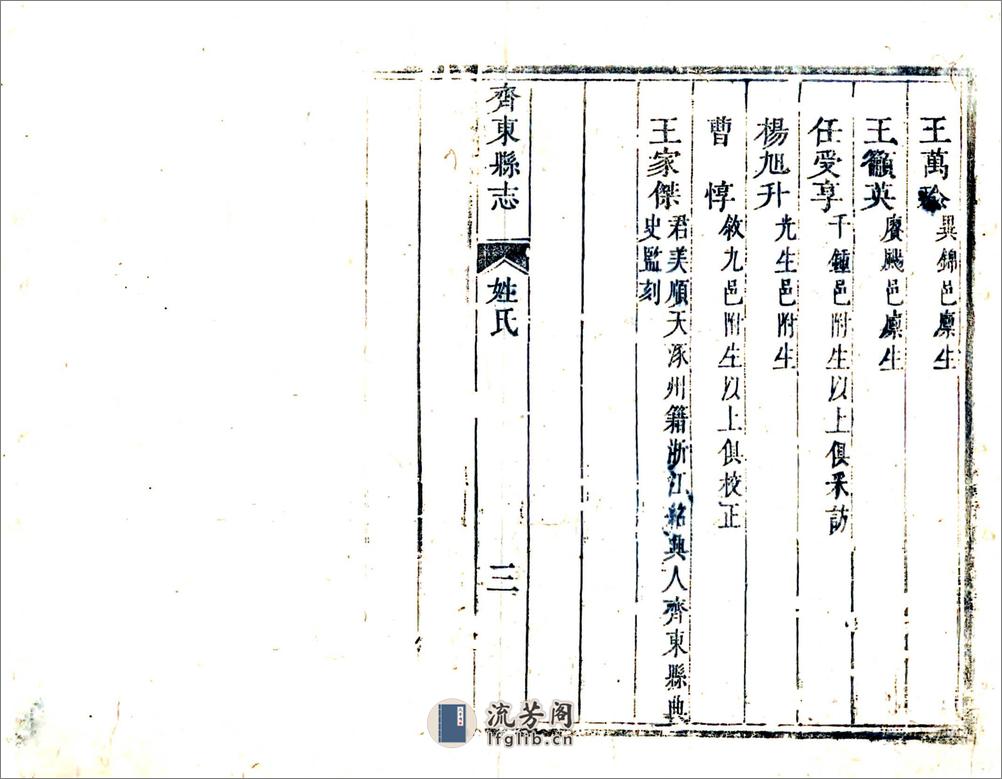 王萬 異錦邑廪生
王籲英 賡颺邑廪生
任受享 千鍾邑附生以上俱采訪
楊旭升 允生邑附生
曹惇 敘九邑附生以上俱校正
王家傑 君美順天涿州籍浙江紹興人齊東縣典
史監刻
齊東縣志
姓氏
三
流芳阁
lfglib.cn